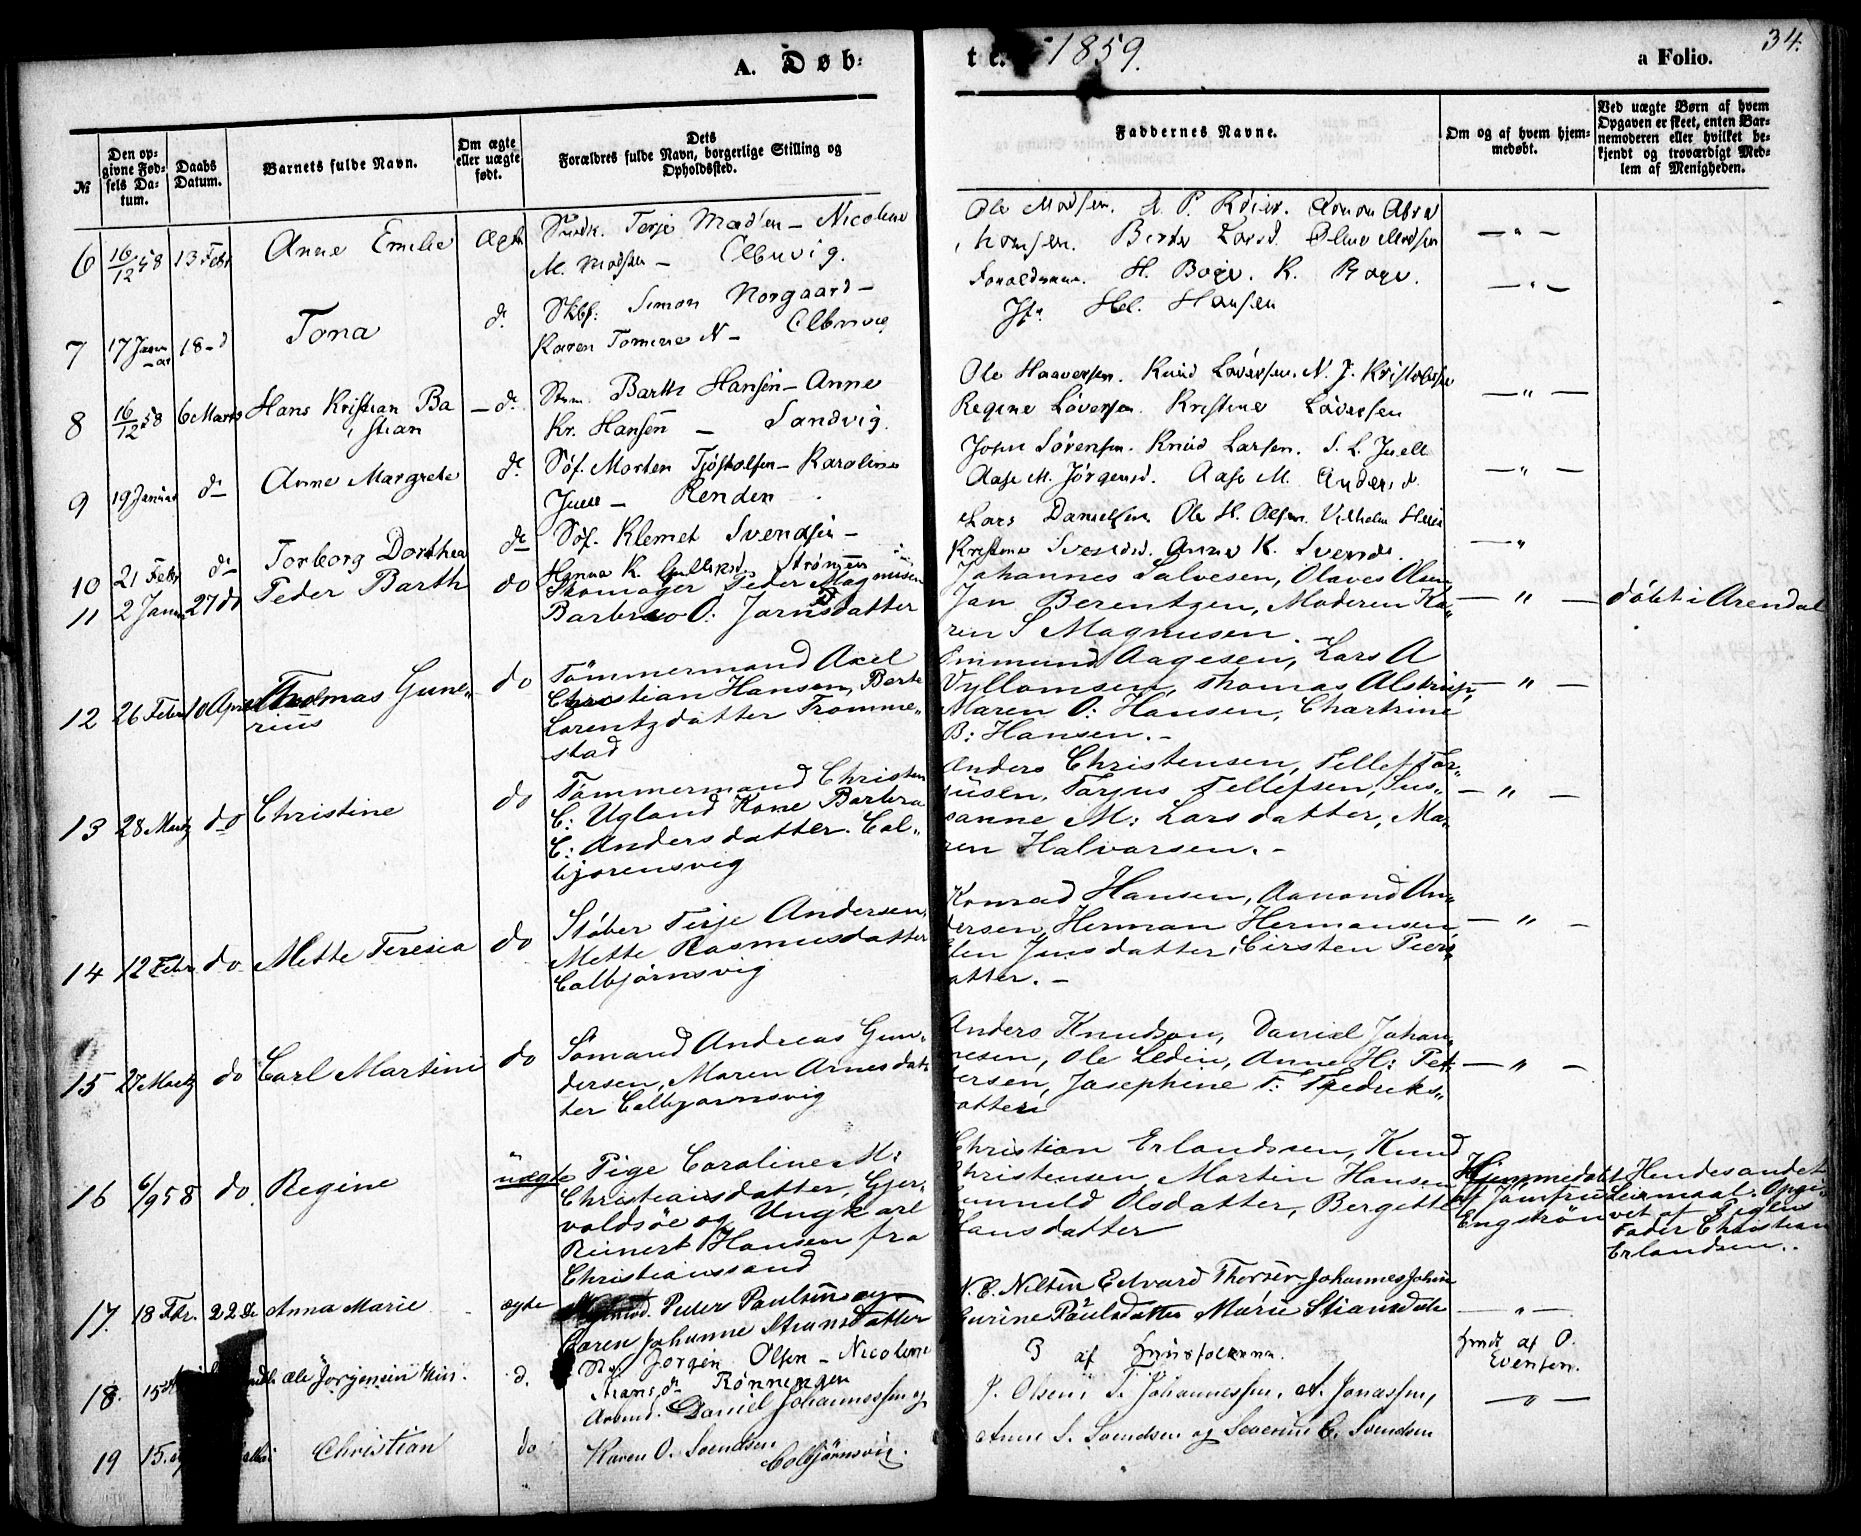 34.
A. Døb=
te. 1859.
a Folio.
№
Den op-
givne Fød-
sels Da-
tum.
Daabs
Datum.
Barnets fulde Navn.
Om ægte
eller uægte
født.
Dets
Forældres fulde Navn, borgerlige Stilling og
Opholdssted.
Faddernes Navne.
Om og af hvem hjem-
medøbt.
Ved uægte Børn af hvem
Opgaven er skeet, enten Bar-
nemoderen eller hvilket be-
kjendt og troværdigt Med-
lem af Menigheden.
6 16/12 58 13 Febr Anne Emilie Ægte
Terje Madsen – Nicoline
M. Madsen –
Ole Madsen. A. P.
Berthe Larsd.
— " —
7 17 Janu 18 d Tona d.
Skbf. Simon Norgaard –
Karen Tomine N –
H. Boye. R. Boye.
Hel. Hansen
— " —
8 16/12 58 6 Marts Hans Kristian Ba
stian
– d.
Barth Hansen – Anne
Kr. Hansen – Sandvig.
Ole Haaversen. Knud Løversen. N. J.
Regine Løversen. Kristine Løversen
— " —
9 19 Januar do Anne Margrete d.
Søf. Morten Tjøstolfsen – Karoline
Juell – Renden
John Sørensen. Knud Larsen. S. L. Juell
Aase M. Jørgensd. Aase M. Andersd.
— " —
10 21 Febr do Torborg Dorthea d.
Søf. Klemet Svendsen –
Hanna K. Strømen
Lars Danielsen. Ole H. Olsen. Vilhelm
Kristine Svendsd. Anne K. Svends.
— "
11 2 Janu 27 do Peder Barth do
Skomager Peder Magnusen
Barbro O: Jørnsdatter
Johannes Salvesen, Olaves Olsen
Jan Berentzen, Moderen Ka"
ren S Magnusen. –
— " —
døbt i Arendal
12 26 Febr 10 April Thomas Gune"
rius
do
Tömmermand Axel
Christian Hansen, Berte
Lorentzdatter Tromme"
stad
Ommund Aagesen, Lars A
Vyllomsen, Thomas Alstrup,
Maren O: Hansen, Chartrine
B: Hansen. –
— " —
13 28 Martz do Christine do
Tömmermand Christen
C: Ugland Kone Barbra
C: Andersdatter. Col"
bjorensvig
Anders Christensen, Tellef Tor"
jusen, Torjus Tellefsen, Sus"
sanne M: Larsdatter, Ma"
ren Halvarsen. –
— " —
14 12 Febr. do Mette Teresia do
Støber Terje Andersen,
Mette Rasmusdatter
Colbjørnsvig
Konrad Hansen, Aanond An"
dersen, Herman Hermansen,
Elen Jensdatter, Cirsten Peers"
atter. –
— " —
15 27 Martz do Carl Martini do
Sømand Andreas Gun"
dersen, Maren Arnesdat"
ter Colbjørnsvig
Anders Knudson, Daniel Johan"
nesen, Ole Ledin, Anne H: Pet"
tersen, Josephine F: Fredriks"
atter
— " —
16 6/9 58 do. Regine uægte
Pige Caroline M:
Christiansdatter, Gjer"
voldsøe og Ungkarl
Reinert Hansen fra
Christianssand
Christian Erlandsen, Knud
Christensen, Martin Hansen,
Gunnild Olsdatter, Bergette
Hansdatter
Hjemmedøbt
af Jomfru
Engstrøm
Hendes andet
Leiermaal. Opgi"
vet af Pigens
Fader Christian
Erlandsen. .
17. 18 Fbr. 22 De Anna Marie ægte
Peder Paulsen og
Karen Johanne Stiansdatter
N. C. Nilsen Edvard Thorsen Johannes Johns
Gurine Paulsdatter Marie Stiansdatter
— " —
18. 15 Ole Jorgensen d.
Jørgen Olsen – Nicoline
Stiansd. Rønningen
P af
hmdt af O.
Evensen.
19 15. Christian do
Arbmd. Daniel Johannessen og
Karen O. Svendsen
Colbjørnsvig.
J. Olsen. T. Johannessen. A. Jonassen,
Anne S. Svendsen og Severine C. Svendsen
— " —